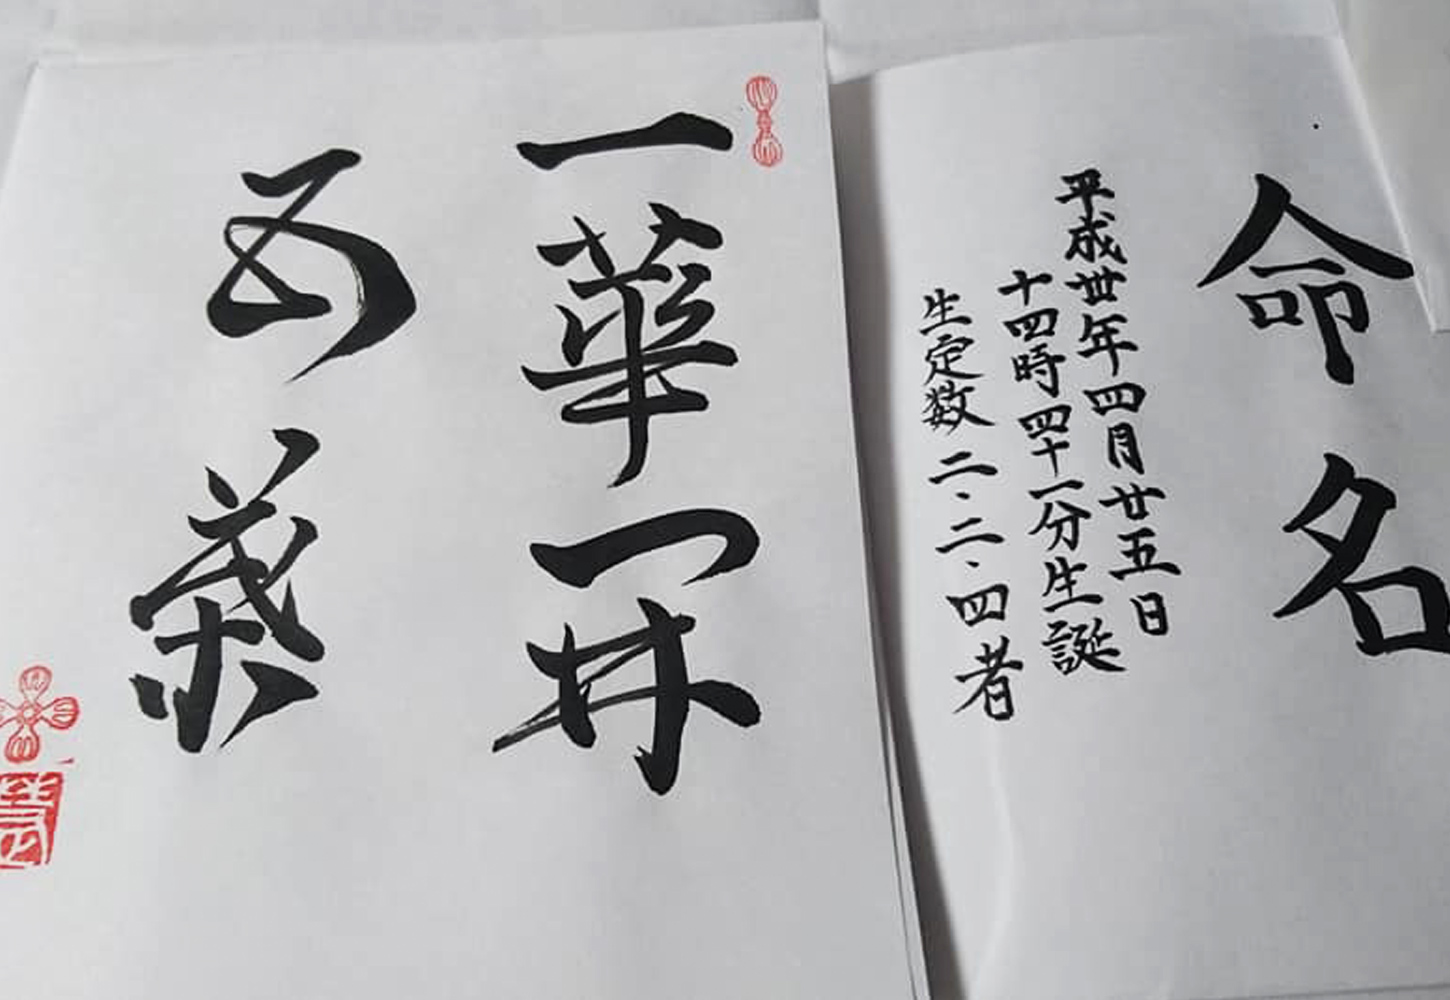 命名
平成丗年四月廿五日
十四時四十一分生誕
生定数二・二・四者
一華開
五葉